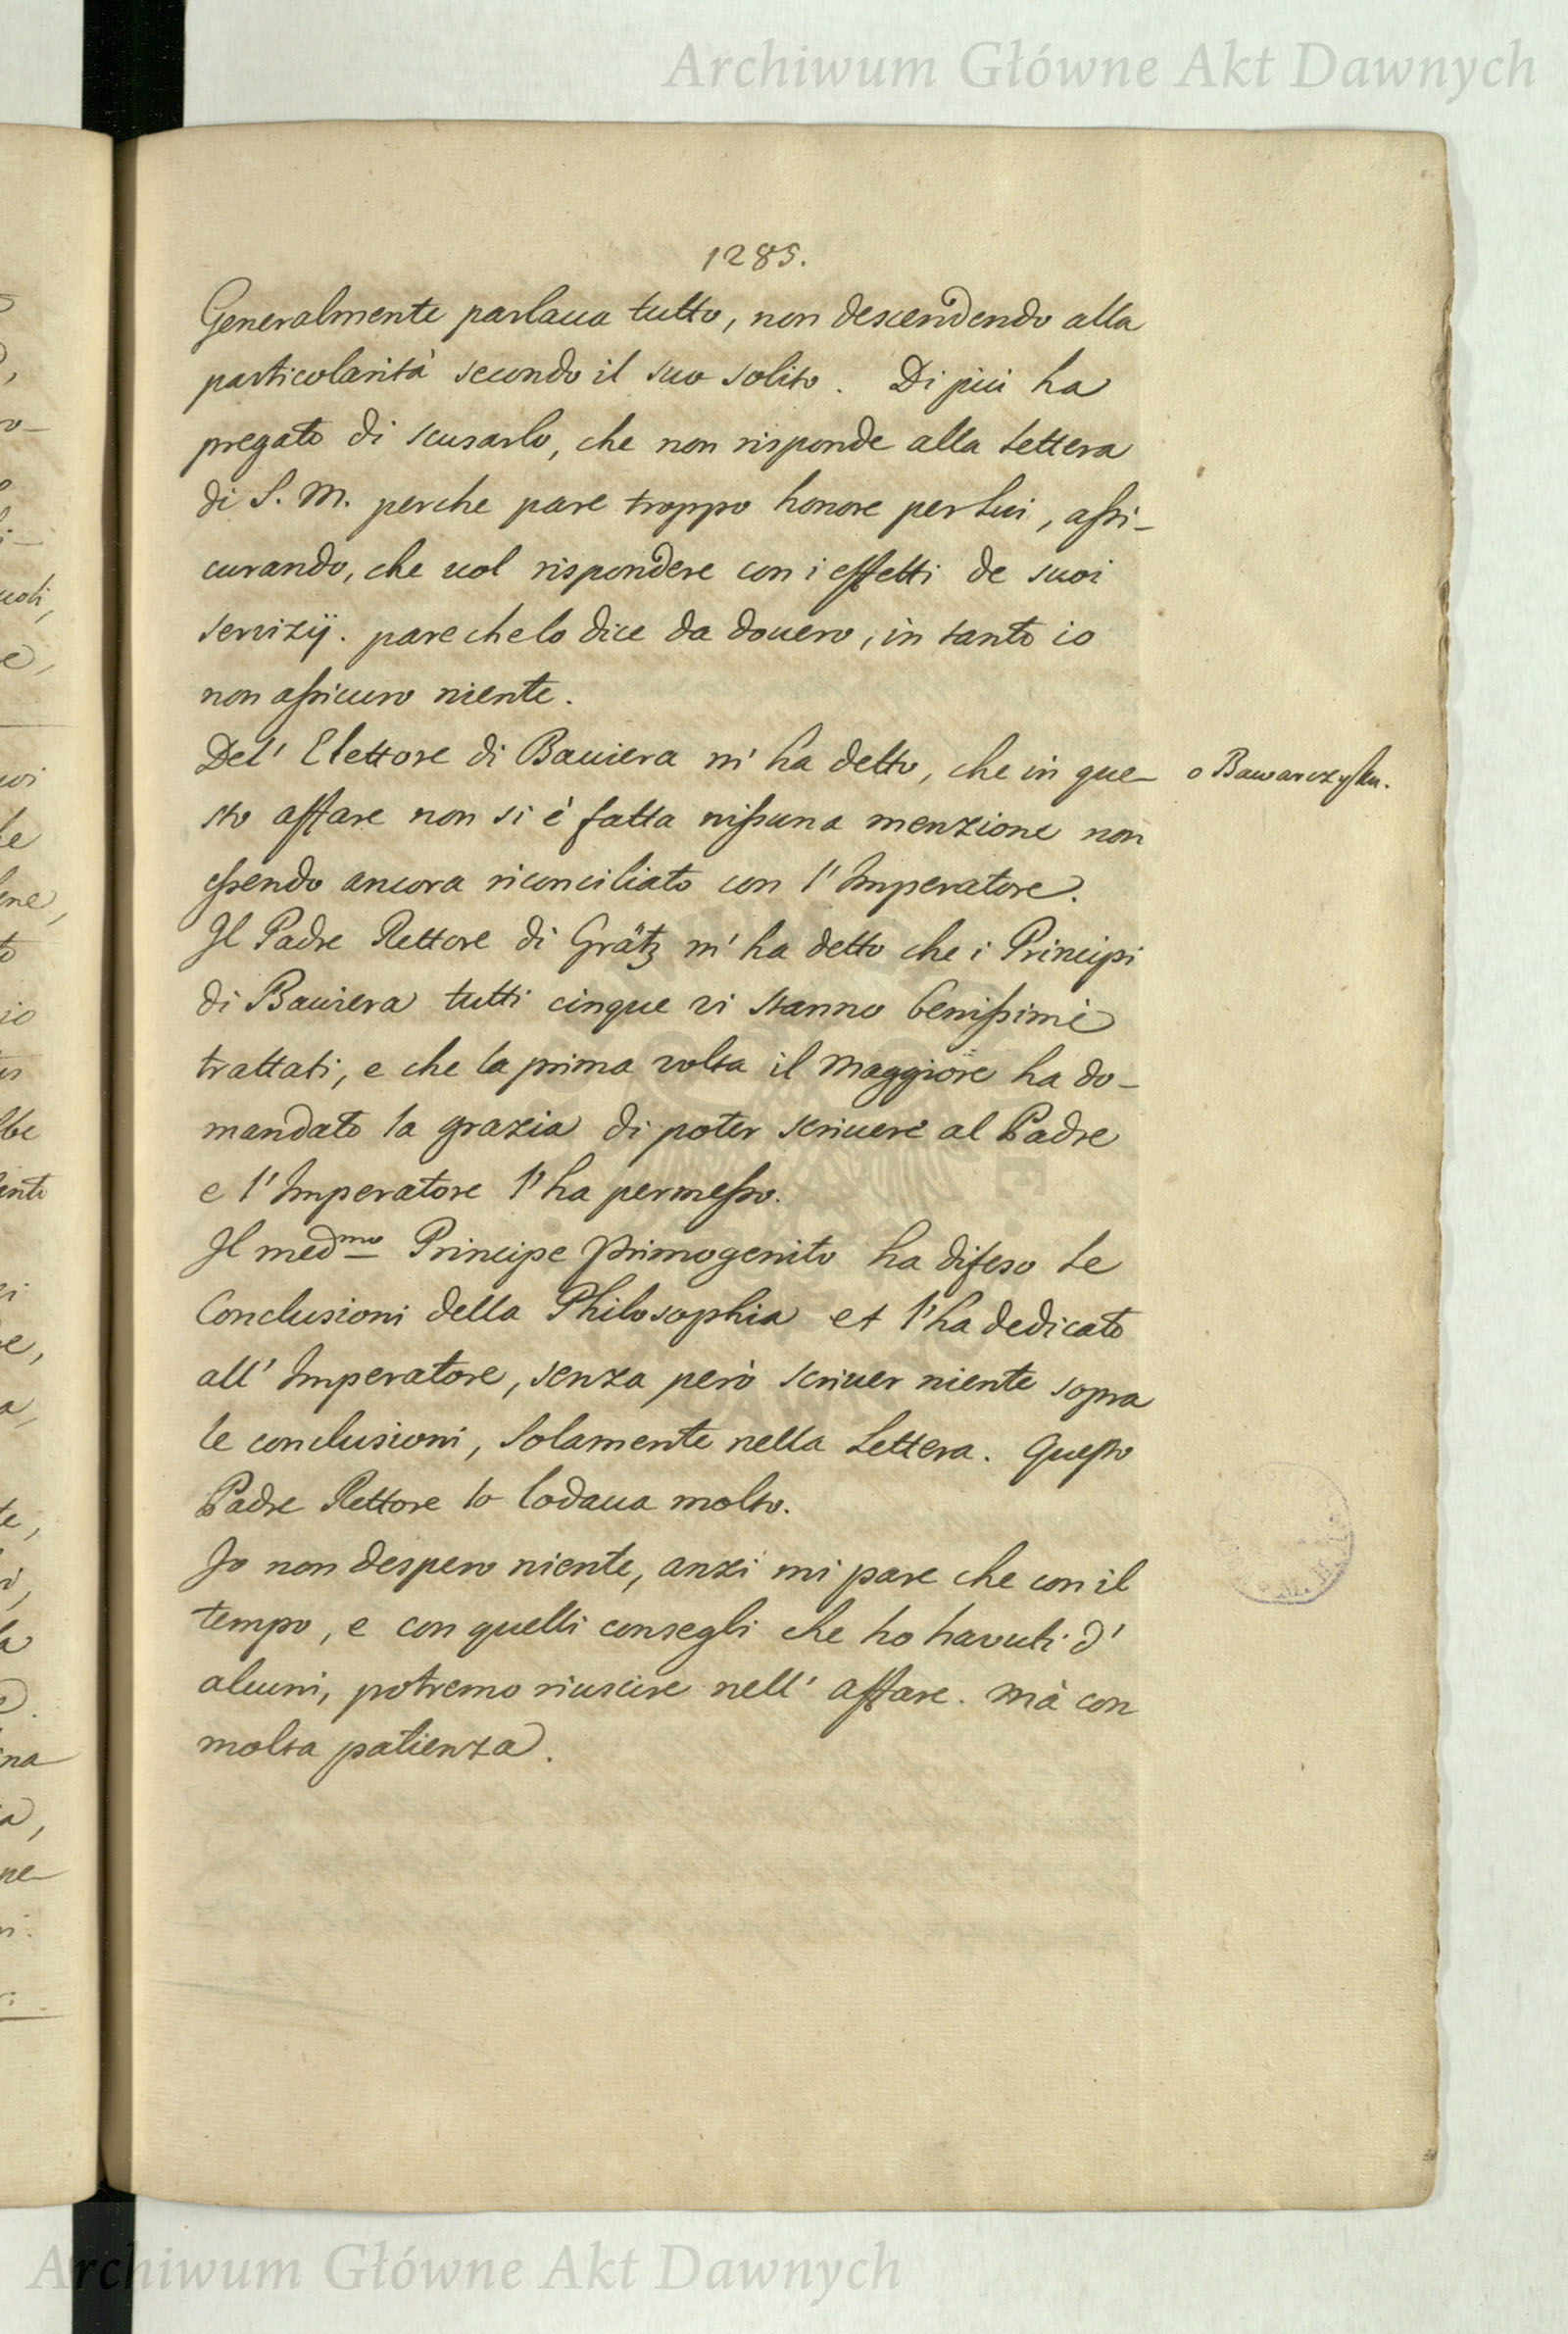 Archiwum Główne Akt Dawnych
1285.
Generalmente parlaua tutto, non descendendo alla
particolarità secondo il suo solito. Di più ha
pregato di scusarlo, che non risponde alla Lettera
di S. M. perche pare troppo honore per Lui, assi-
curando, che uol rispondere con i effetti de suoi
seruizÿ. pare che lo dice da douero, in tanto io
non assicuro niente.
Del' Elettore di Bauiera m' ha detto, che in que-
sto affare non si è fatta nissuna menzione non
essendo ancora riconciliato con l' Imperatore.
o Bawarczyku.
Il Padre Rettore di Grätz m' ha detto che i Principi
di Bauiera tutti cinque vi stanno benissimè
trattati, e che la prima volta il Maggiore ha do-
mandato la grazia di poter scriuere al Padre
e l' Imperatore l' ha permesso.
Il medmo Principe Primogenito ha difeso Le
Conclusioni della Philosophia et l' ha dedicato
all' Imperatore, senza però scriuer niente sopra
le conclusioni, Solamente nella Lettera. Questo
Padre Rettore lo lodaua molto.
Io non despero niente, anzi mi pare che con il
tempo, e con quelli consegli che ho havuti d'
alcuni, potremo riuscire nell' affare. Mà con
molta patienza.
Archiwum Główne Akt Dawnych